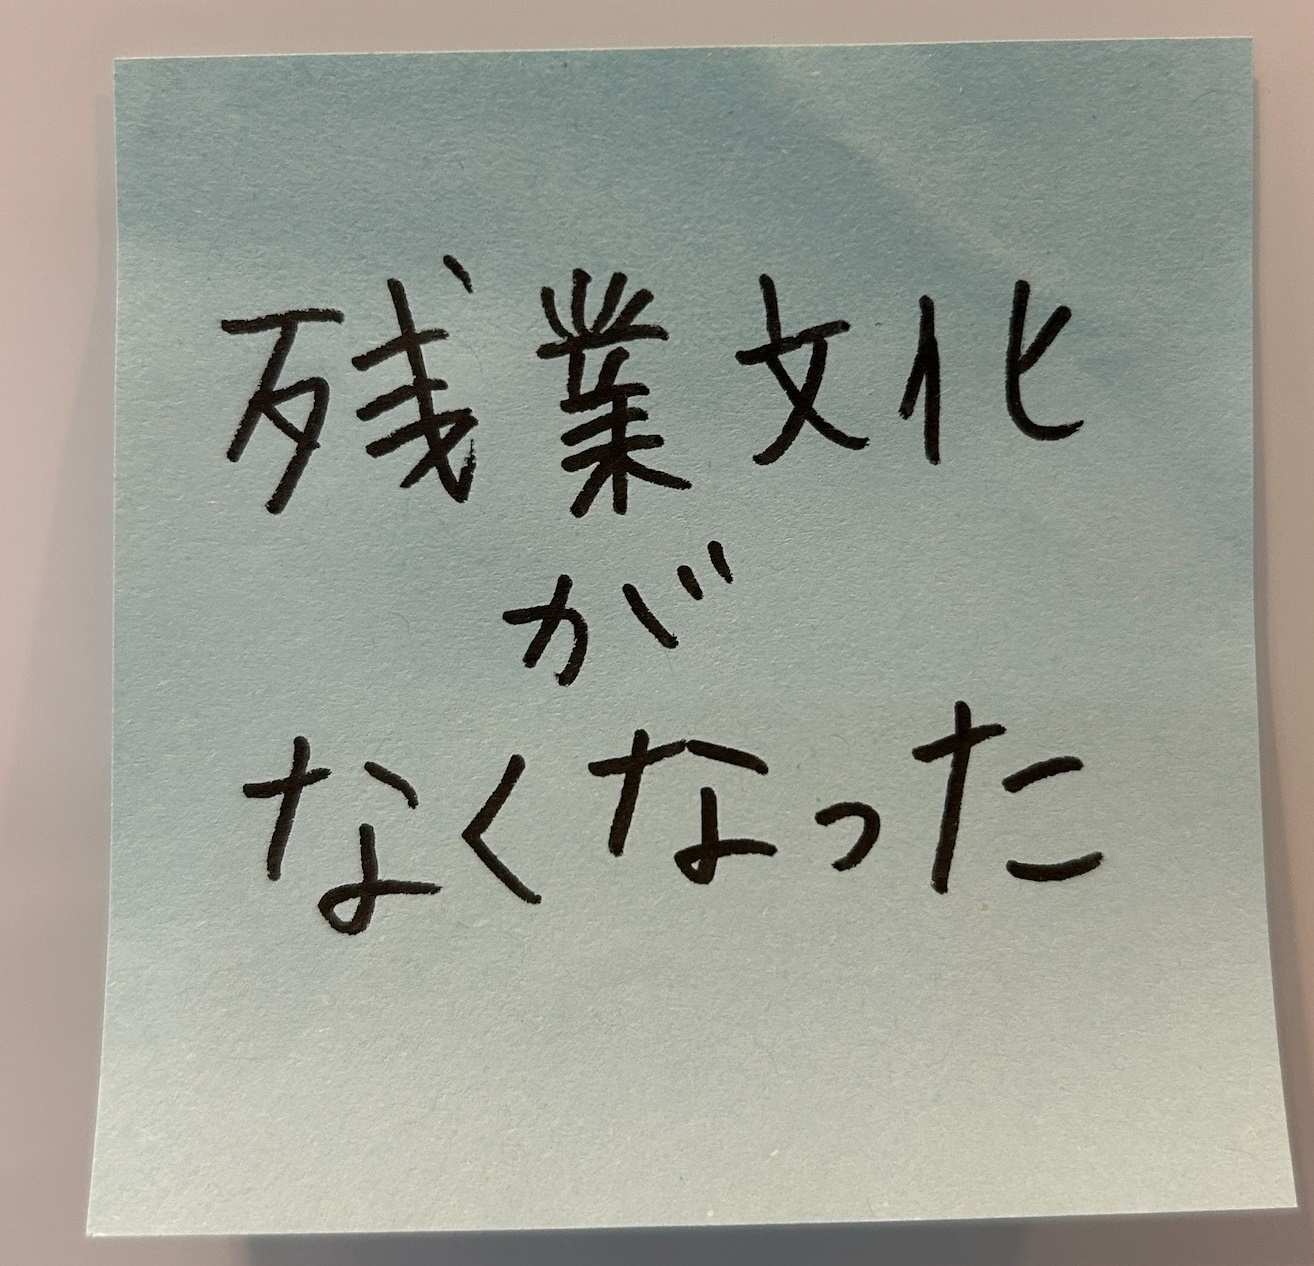 残業文化
が
なくなった